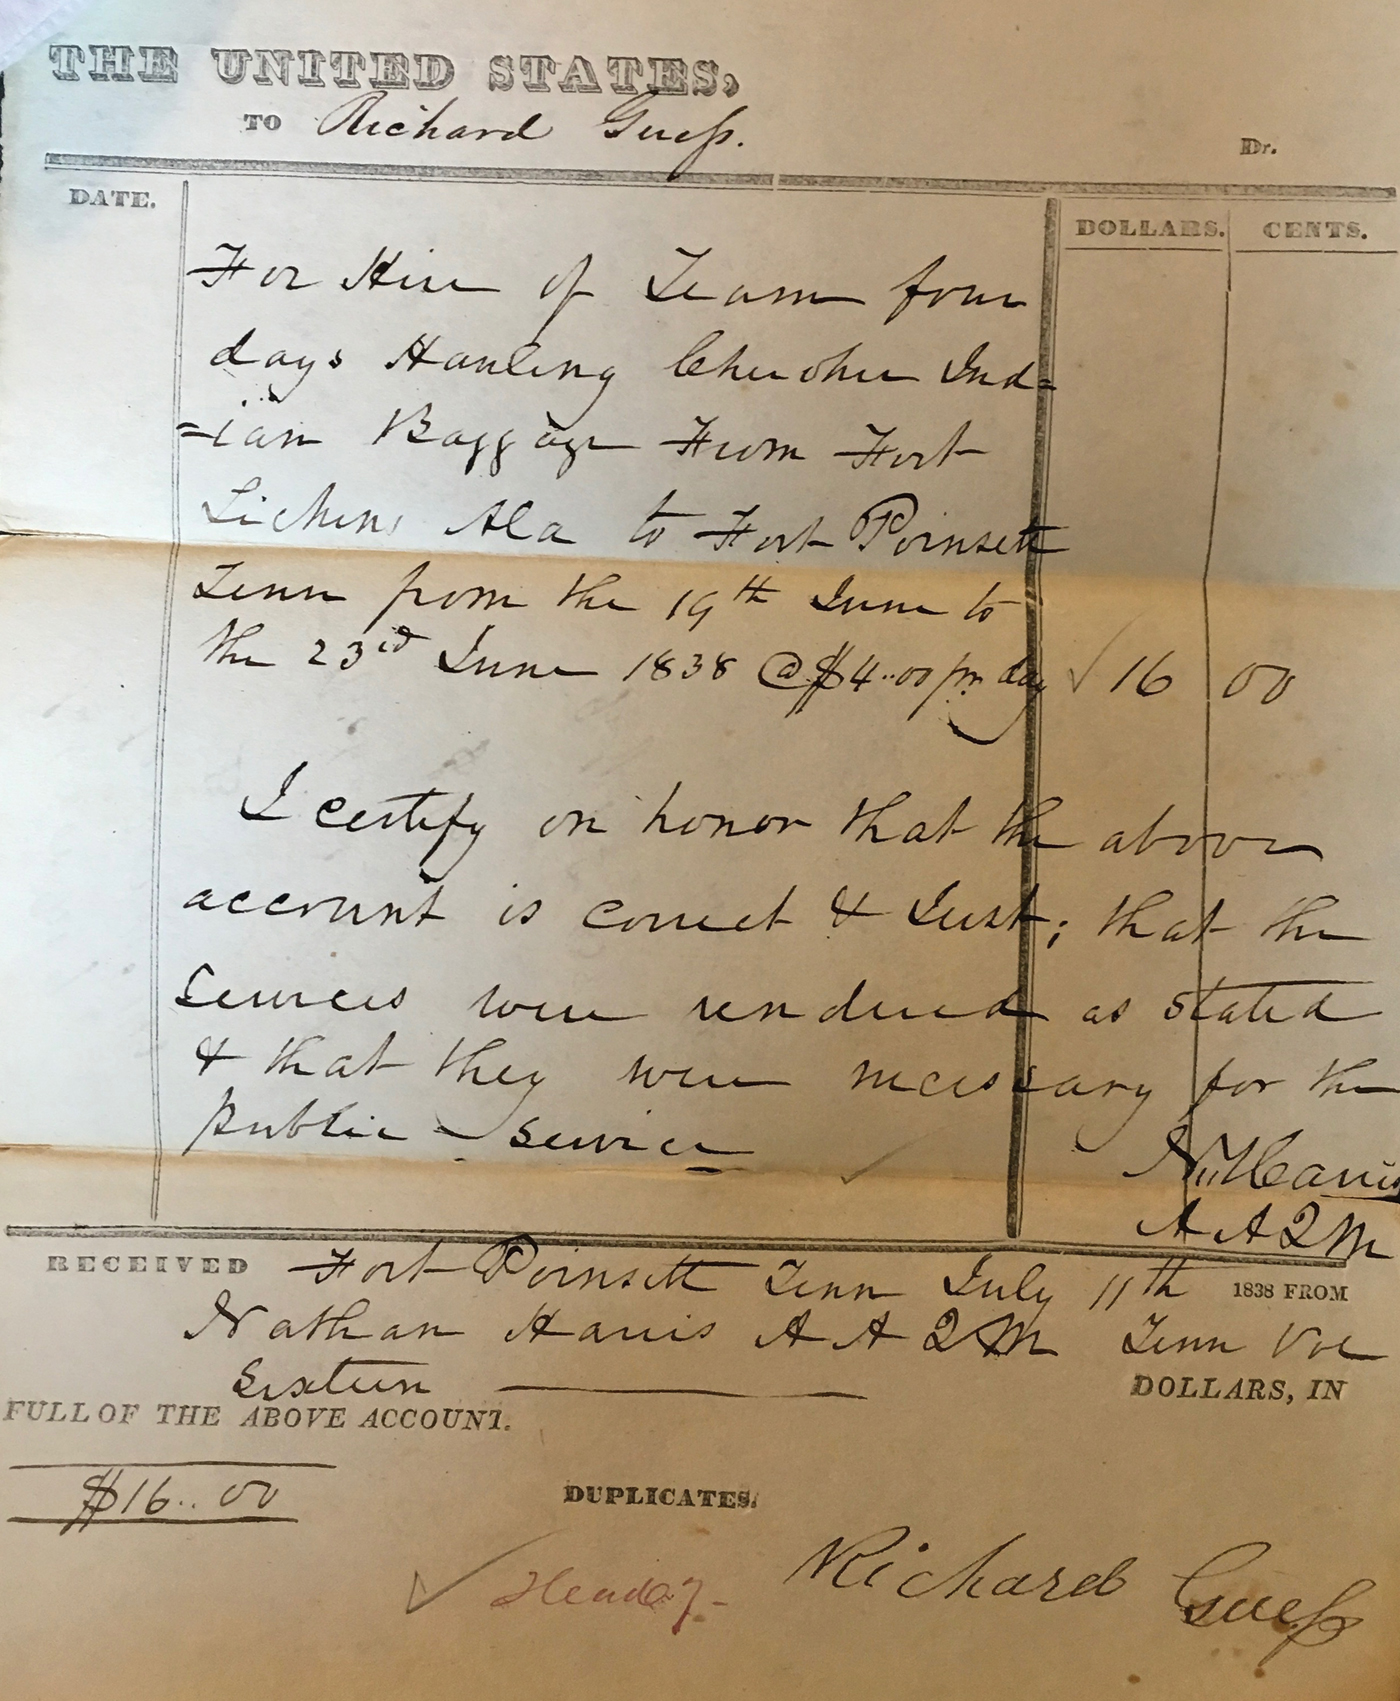 THE UNITED STATES,
TO Richard Guess.
Dr.
DATE.
DOLLARS. CENTS.
For Hire of Team four
days Hauling Cherokee Ind=
=ian Baggage From Fort
Likens Ala to Fort Poinsett
Tenn from the 19th June to
the 23rd June 1838 @ $4..00 pr day 16 00
I certify on honor that the above
account is correct & Just; that the
Services were rendered as stated
& that they were necessary for the
Public - Service
N. Harris
A A Q M
RECEIVED Fort Poinsett Tenn July 11th 1838 FROM
Nathan Harris A A Q M Tenn Vol
Sixteen DOLLARS, IN
FULL OF THE ABOVE ACCOUNT.
$16..00
DUPLICATES.
Richard Guess